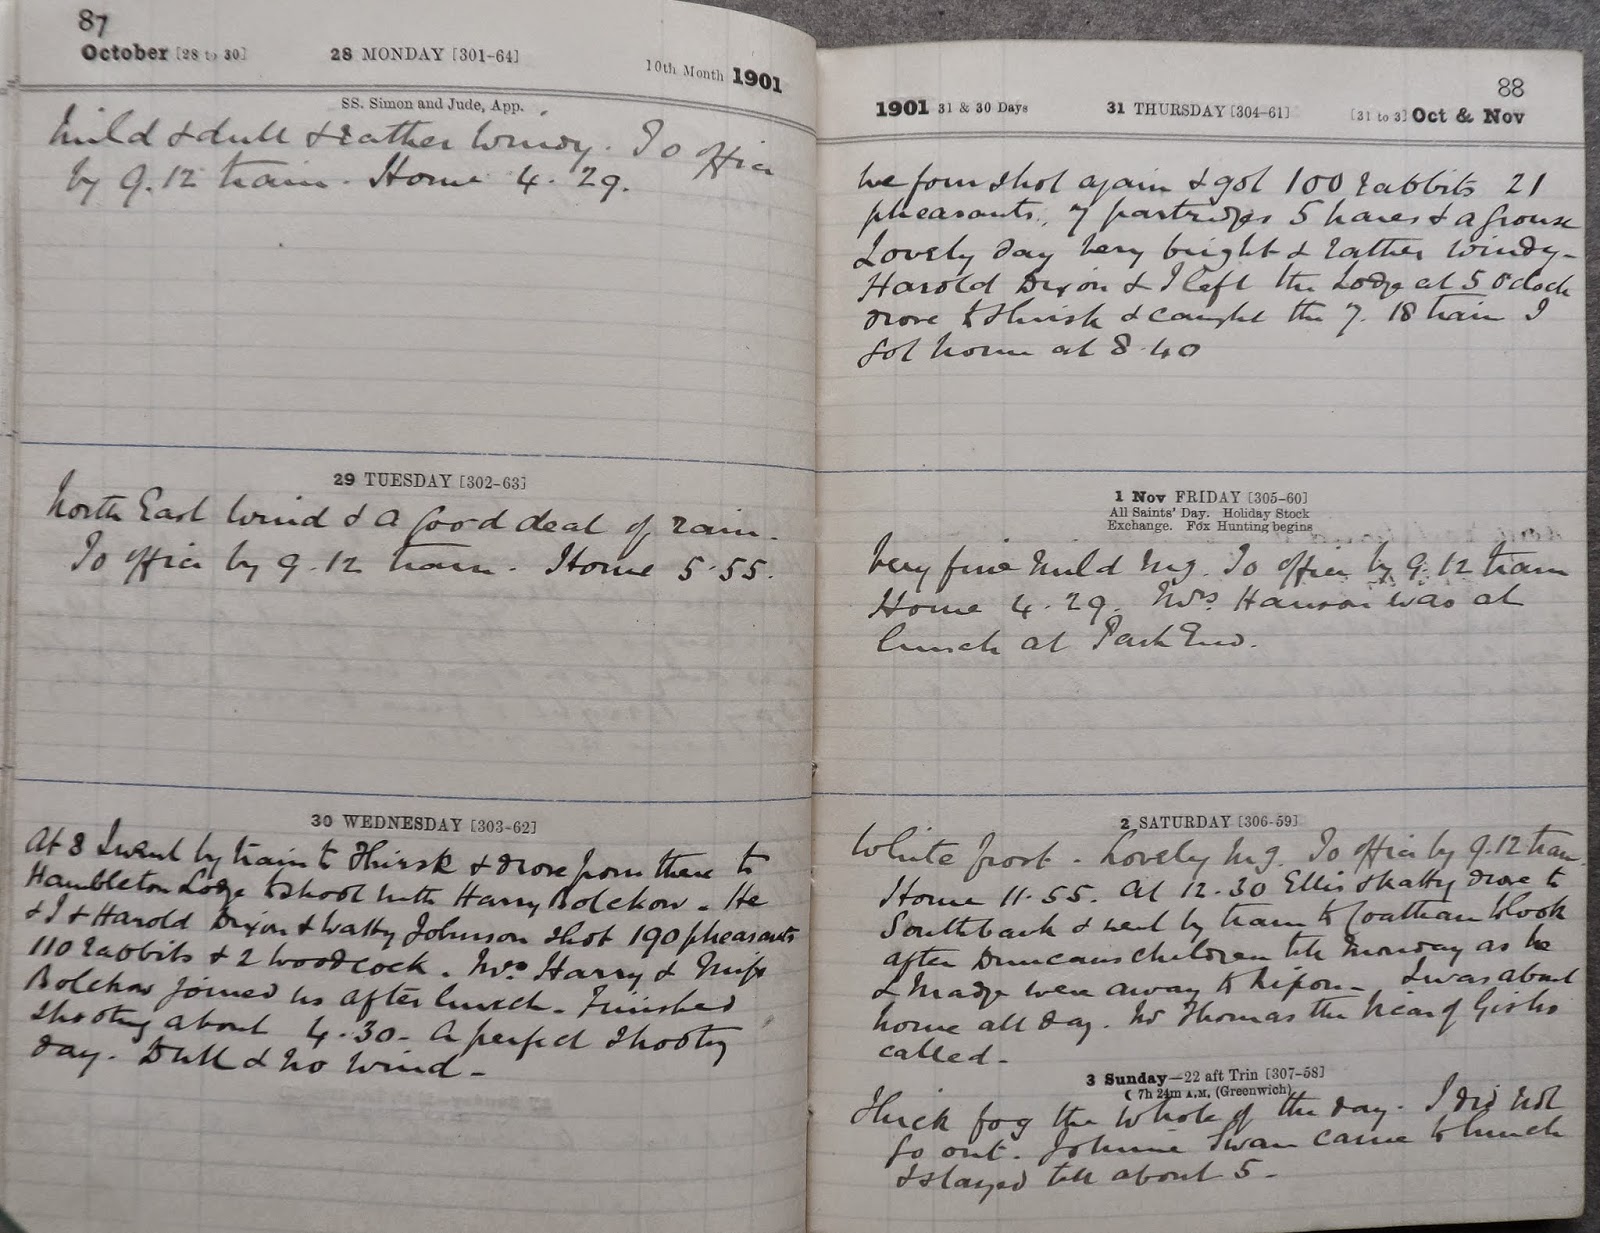 87
October [28 to 30] 28 MONDAY [301-64] 10th Month 1901
SS. Simon and Jude, App.
Mild & dull & rather windy. To office
by 9.12 train. Home 4.29.
29 TUESDAY [302-63]
North East wind & a good deal of rain.
To office by 9.12 train. Home 5.55.
30 WEDNESDAY [303-62]
At 8 I went by train to Thirsk & drove from there to
Hambleton Lodge to shoot with Harry Bolckow. He
& I & Harold Dixon & Watty Johnson shot 190 pheasants
110 rabbits & 2 woodcock. Mrs Harry & Miss
Bolckow joined us after lunch. Finished
shooting about 4.30. A perfect shooting
day. Dull & no wind.
88
1901 31 & 30 Days 31 THURSDAY [304-61] [31 to 3] Oct & Nov
We four shot again & got 100 rabbits 21
pheasants, 7 partridges 5 hares & a grouse
Lovely day very bright & rather windy.
Harold Dixon & I left the Lodge at 5 oclock
drove to Thirsk & caught the 7.18 train I
got home at 8.40
1 Nov FRIDAY [305-60]
All Saints' Day. Holiday Stock
Exchange. Fox Hunting begins
Very fine mild mg. To office by 9.12 train
Home 4.29. Mrs Hanson was at
lunch at Park End.
2 SATURDAY [306-59]
White frost. Lovely mg. To office by 9.12 train.
Home 11.55. At 12.30 Ellis & Katty drove to
Southbank & went by train to Coatham to look
after Duncans children till Monday as he
& Madge were away to Ripon. I was about
home all day. Mr Thomas the Vicar of Gisbro
called.
3 Sunday—22 aft Trin [307-58]
☾ 7h 24m A.M. (Greenwich)
Thick fog the whole of the day. I did not
go out. Johnnie Swan came to lunch
& stayed till about 5.